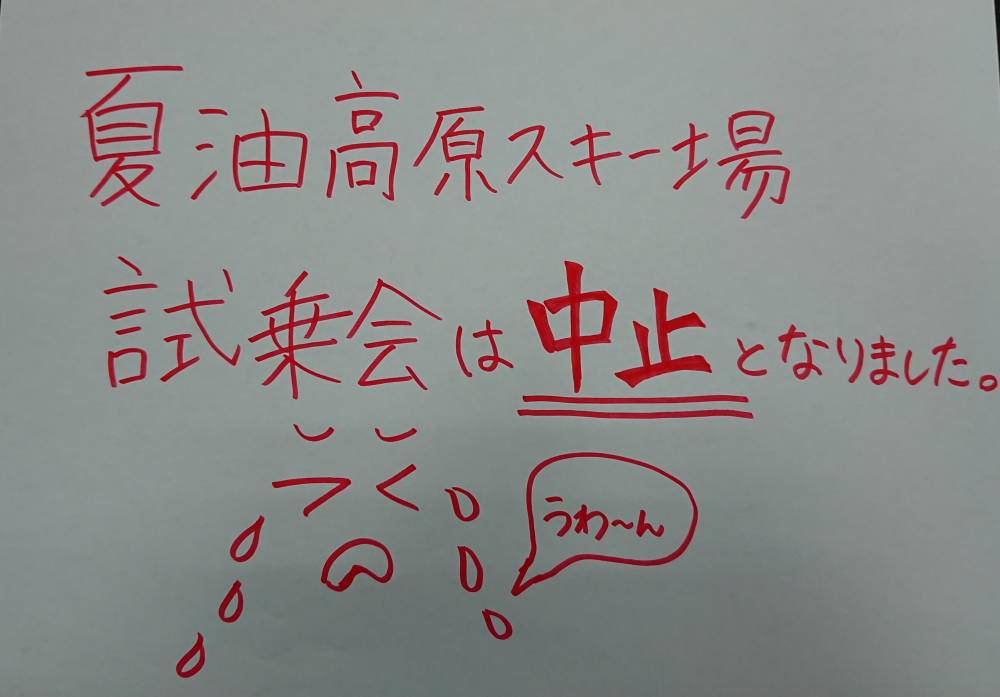 夏油高原スキー場
試乗会は中止となりました。
うわ～ん